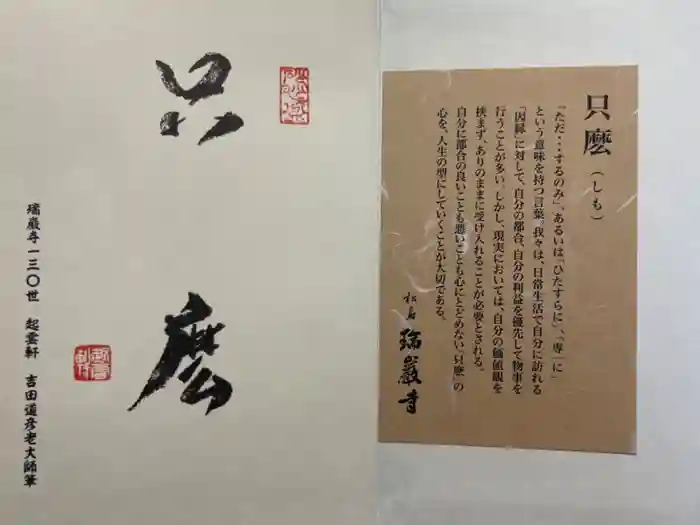 只麼
瑞巌寺一三〇世 起雲軒 吉田道彦老大師筆
只麼(しも)
「ただ・・・するのみ」、あるいは「ひたすらに」、「専一に」
という意味を持つ言葉。我々は、日常生活で自分に訪れる
「因縁」に対して、自分の都合、自分の利益を優先して物事を
行うことが多い。しかし、現実においては、自分の価値観を
挟まず、ありのままに受け入れることが必要とされる。
自分に都合の良いことも悪いことも心にとどめない「只麼」の
心を、人生の型にしていくことが大切である。
松島 瑞巌寺